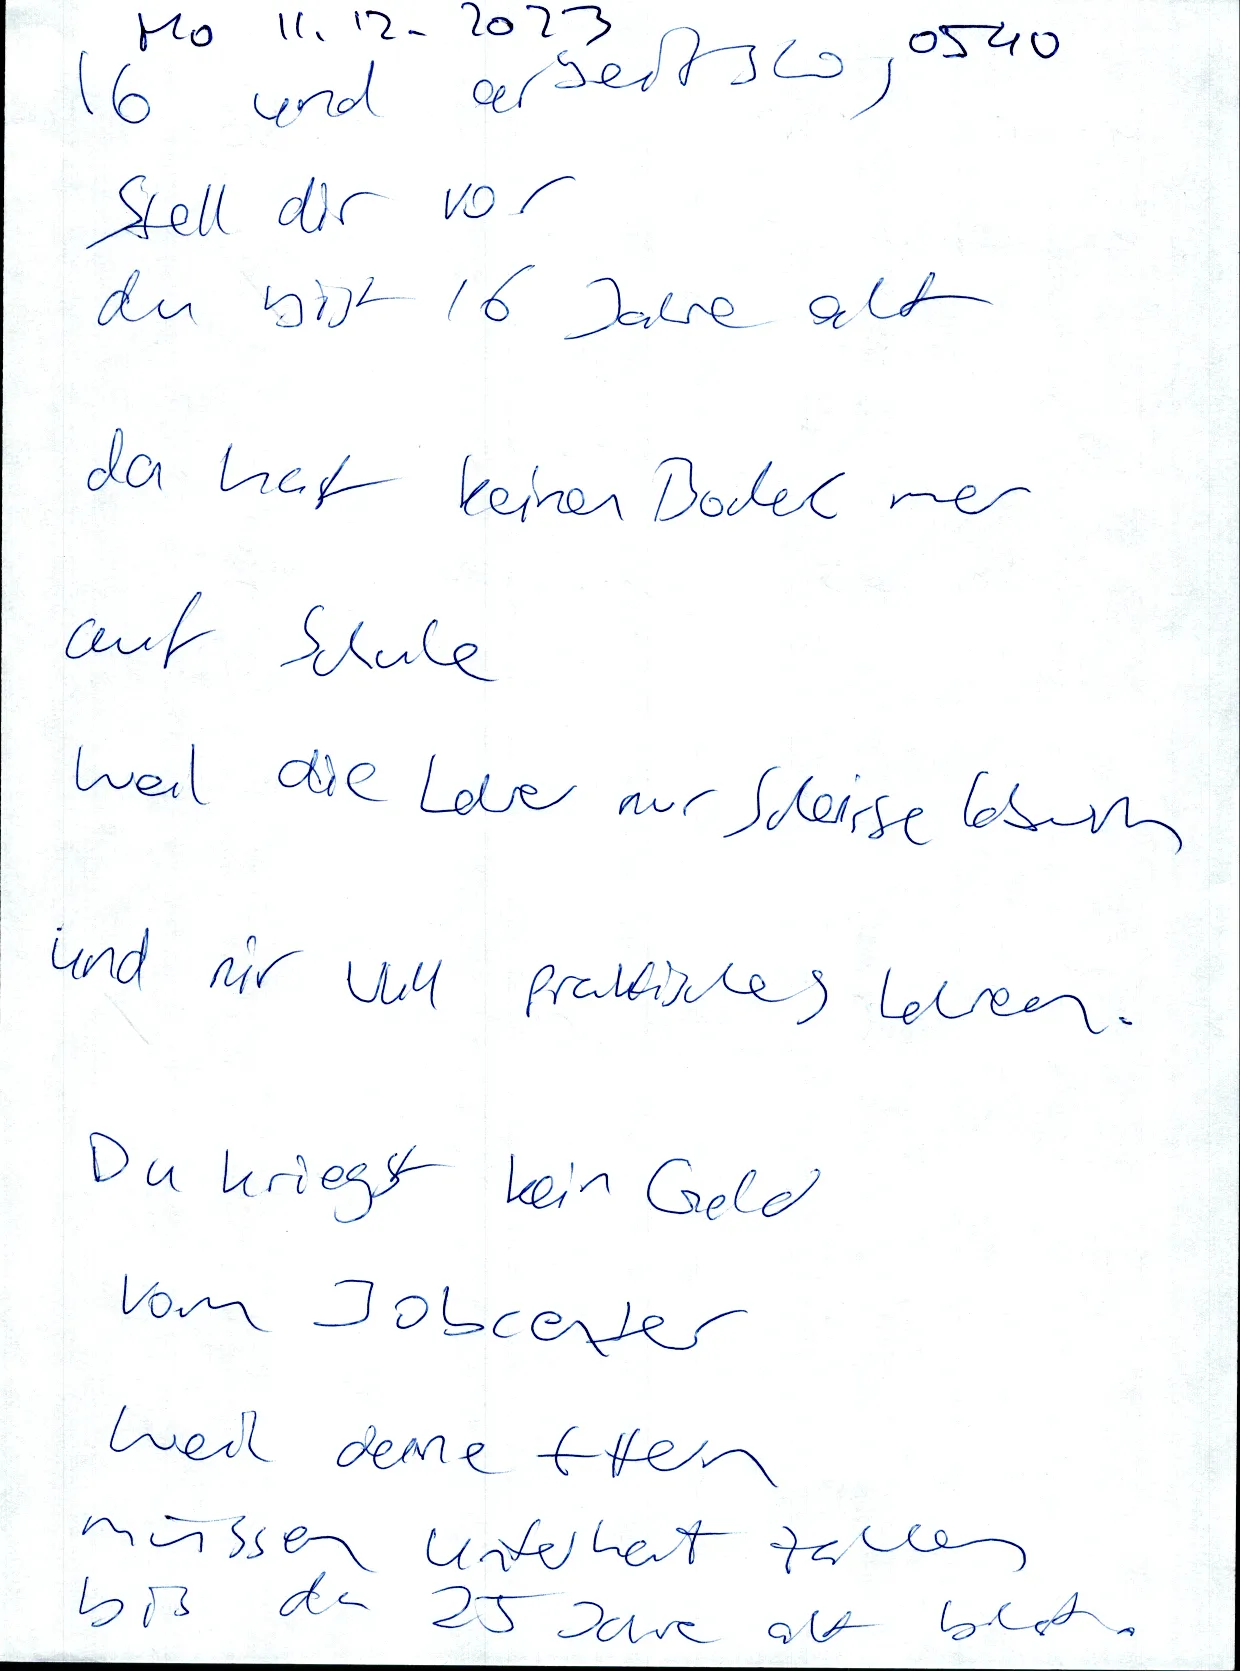 Mo 11.12.2023 0540
16 und arbeitslos,
Stell dir vor
du bist 16 Jahre alt
da hast keinen Bock mer
auf Schule
weil die Lehrer nur Scheisse labern
und nir will praktisches lehren.
Du kriegst kein Geld
vom Jobcenter
weil deine Eltern
müssen Unterhalt zahlen
bis du 25 Jahre alt bist.